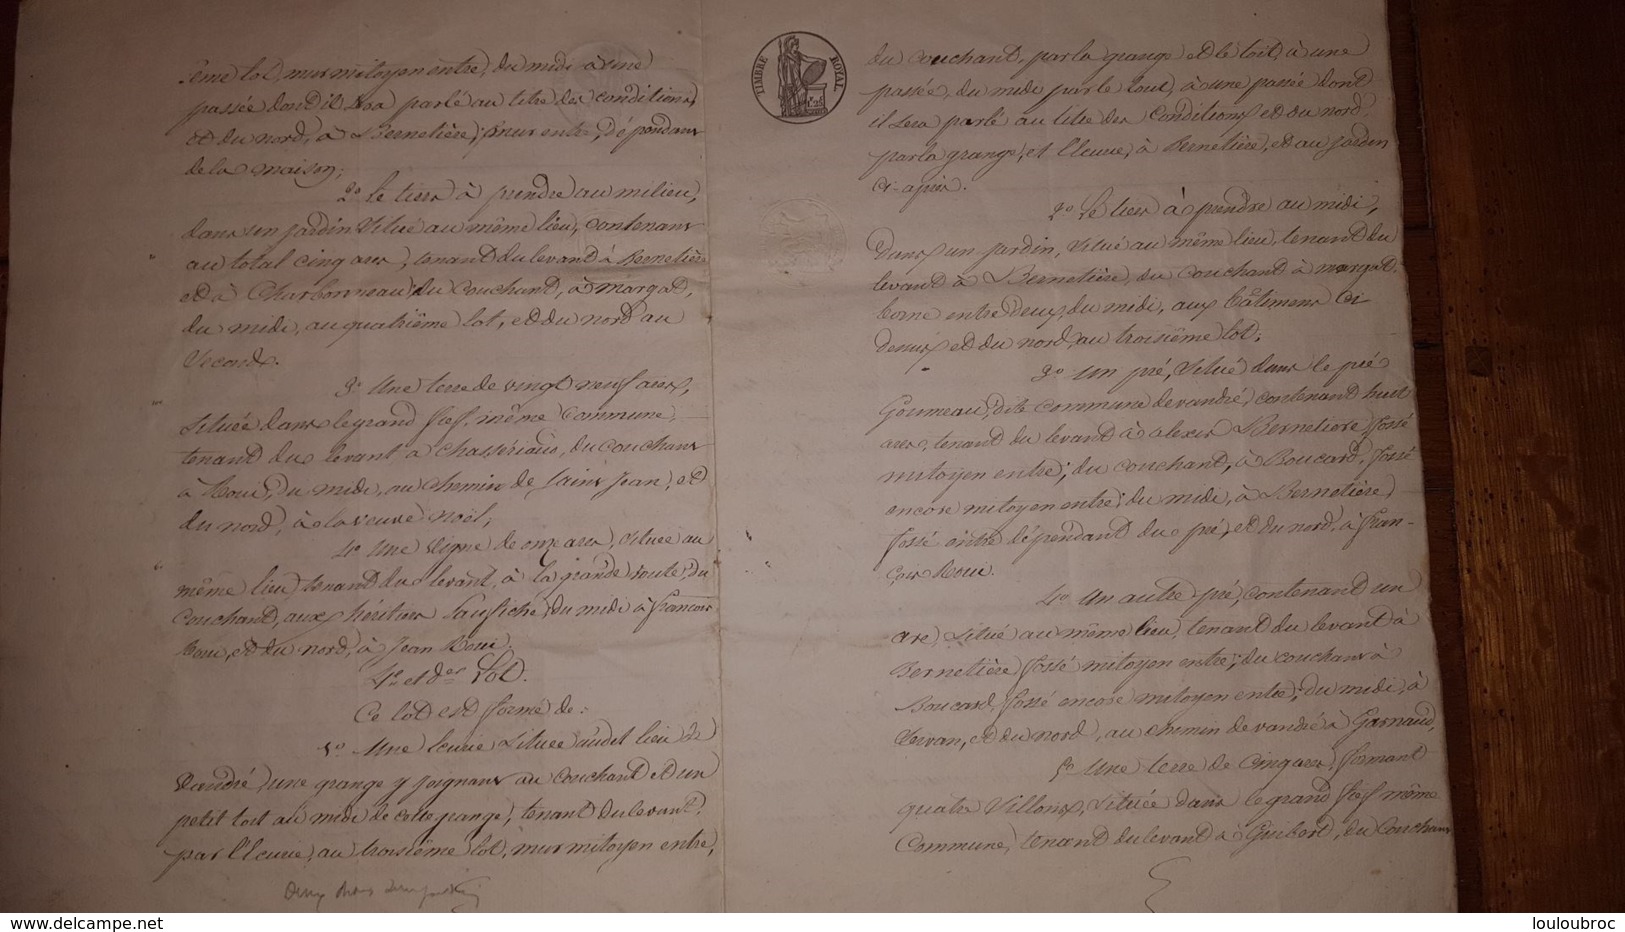 ème lot, mur mitoyen entre, du midi à une
passée dont il sera parlé au titre des conditions,
et du nord, à Bernetière, mur entre, dépendant
de la maison;
2o Le tiers à prendre au milieu,
dans un jardin situé au même lieu, contenant
au total cinq ares, tenant du levant à Bernetière
et à Charbonneau, du couchant, à Margat,
du midi, au quatrième lot, et du nord au
second.
3o Une terre de vingt neuf ares,
située dans le grand fief, même commune,
tenant du levant à Chassériaud, du couchant
à Roui, du midi, au chemin de Saint Jean, et
du nord, à la veuve Noël,
4o Une vigne de onze ares, située au
même lieu, tenant du levant, à la grande route, du
couchant, aux héritiers du midi à François
Roui, et du nord, à Jean Roui.
4e et der Lot.
Ce lot est formé de:
1o Une écurie située audit lieu de
Vandré, une grange y joignant au couchant et un
petit toit au midi de cette grange, tenant du levant,
par l'écurie, au troisième lot, mur mitoyen entre,
TIMBRE ROYAL
du couchant, par la grange et le toit, à une
passée, du midi par le tout, à une passée dont
il sera parlé au titre des conditions, et du nord,
par la grange, et l'écurie, à Bernetière, et au jardin
ci-après.
2o Le tiers à prendre au midi,
dans un jardin, situé au même lieu, tenant du
levant à Bernetière, du couchant à Margat,
borne entre deux, du midi, aux bâtimens ci
dessus et du nord, au troisième lot;
3o Un pré, situé dans le pré
Goumeau, dite commune de Vandré, contenant huit
ares, tenant du levant à Alexis Bernetière, fossé
mitoyen entre; du couchant, à Boucard, fossé
encore mitoyen entre; du midi, à Bernetière,
fossé entre dépendant du pré, et du nord, à Fran-
çois Roui.
4o Un autre pré, contenant un
are, situé au même lieu, tenant du levant à
Bernetière, fossé mitoyen entre; du couchant à
Boucard, fossé encore mitoyen entre; du midi, à
et du nord, au chemin de Vandré à
5o Une terre de cinq ares, formant
quatre sillons, située dans le grand fief même
commune, tenant du levant à Guibert, du couchant
louloubroc